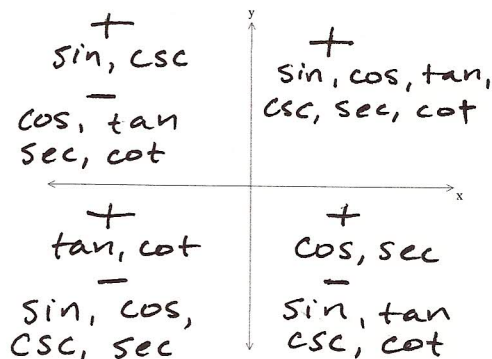 y
x
+
sin, csc
−
cos, tan
sec, cot
+
sin, cos, tan,
csc, sec, cot
+
tan, cot
−
sin, cos,
csc, sec
+
cos, sec
−
sin, tan
csc, cot